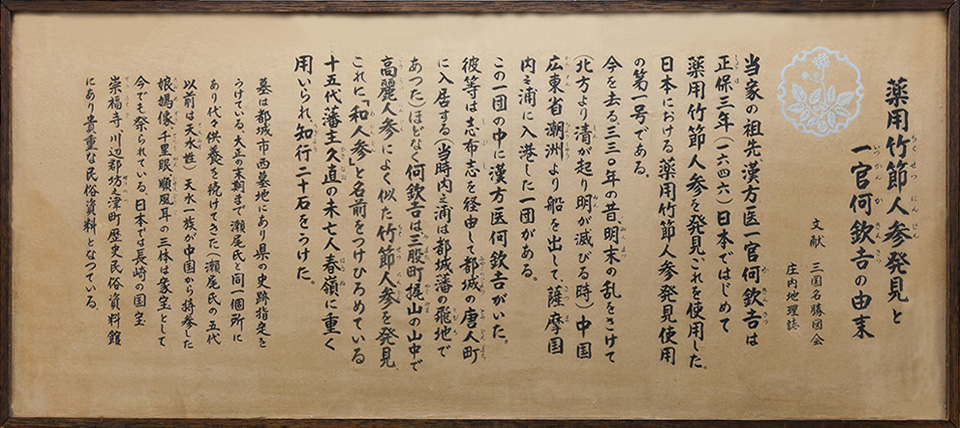 薬用竹節人参発見と
一官何欽吉の由来
文献 三国名勝図会
庄内地理誌
当家の祖先漢方医一官何欽吉は
正保三年(一六四六)日本ではじめて
薬用竹節人参を発見これを使用した。
日本における薬用竹節人参発見使用
の第一号である。
今を去る、三三〇年の昔、明末の乱をさけて
(北方より清が起り明が滅びる時)中国
広東省潮州より船を出して、薩摩国
内之浦に入港した一団がある。
この一団の中に漢方医何欽吉がいた。
彼等は志布志を経由して、都城の唐人町
に入居する(当時内之浦は都城藩の飛地で
あつた)ほどなく何欽吉は三股町梶山の山中で
高麗人参によく似た竹節人参を発見、
これに「和人参」と名前をつけひろめている
十五代藩主久直の未亡人春嶺に重く
用いられ、知行二十石をうけた。
墓は都城市西墓地にあり県の史跡指定を
うけている、大正の末期まで瀬尾氏と同一個所に
あり代々供養を続けてきた(瀬尾氏の五代
以前は天水姓)天水一族が中国から持参した
娘媽像、千里眼、順風耳の三体は家宝として
今でも祭られている、日本では長崎の国宝
崇福寺、川辺郡坊之津町歴史民俗資料館
にあり貴重な民俗資料となつている。